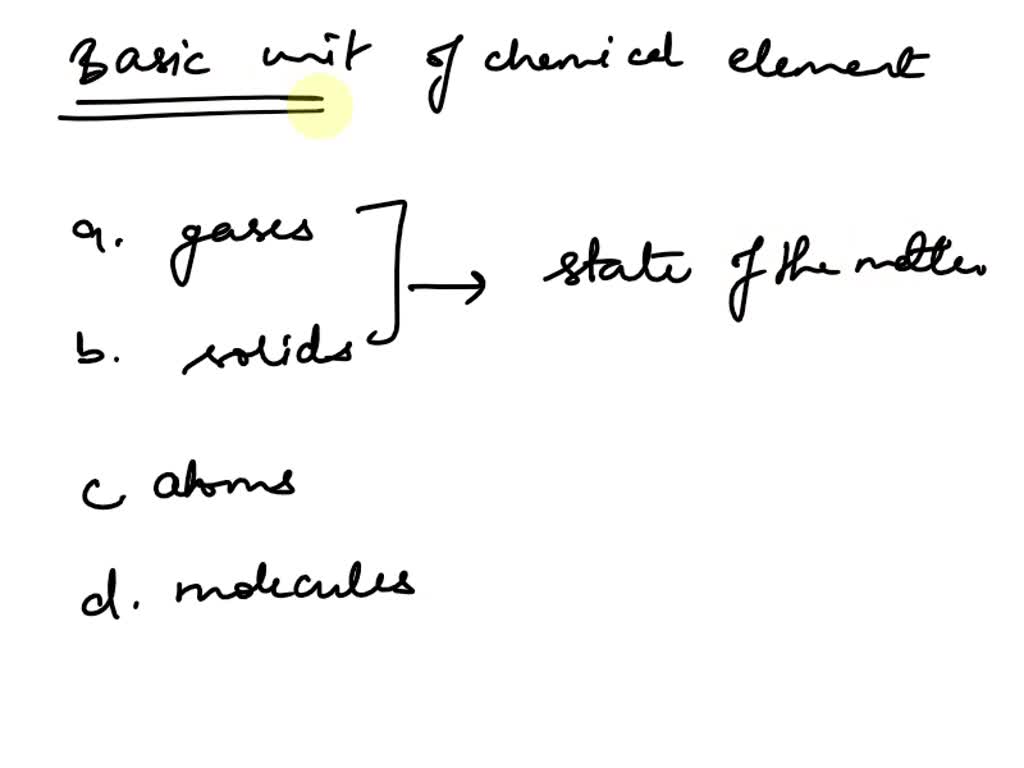 Basic unit of chemical element
a. gases
state of the matter
b. solids
c atoms
d. molecules